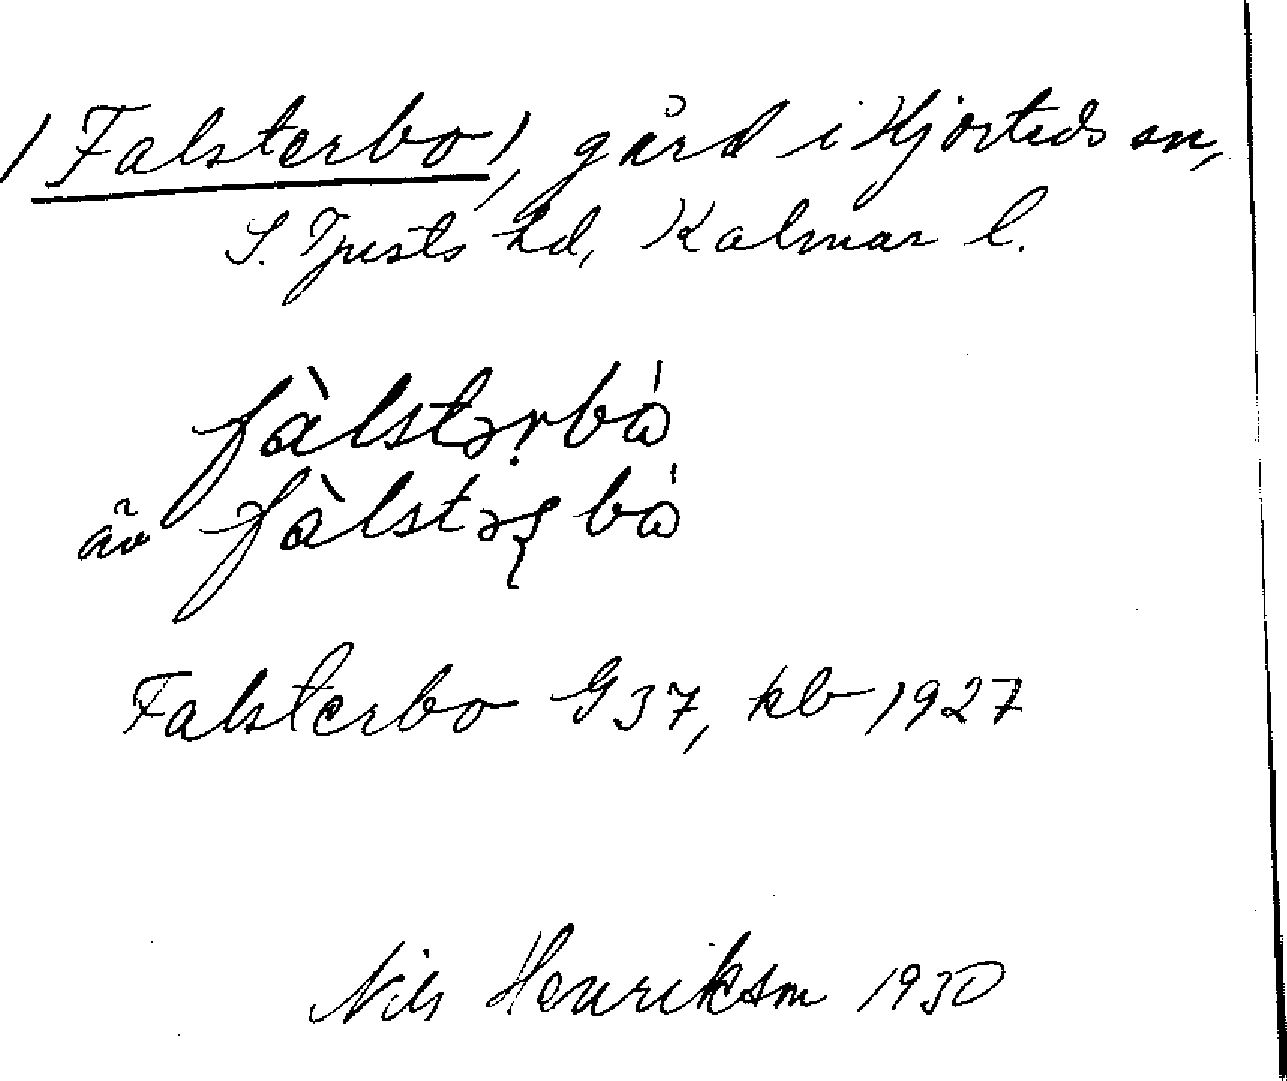 /Falsterbo/, gård i Hjorteds sn,
S. Tjusts hd, Kalmar l.
fàlstərbó
äv fàlstəꞧbó
Falsterbo G 37, kb 1927
Nils Henrikson 1930